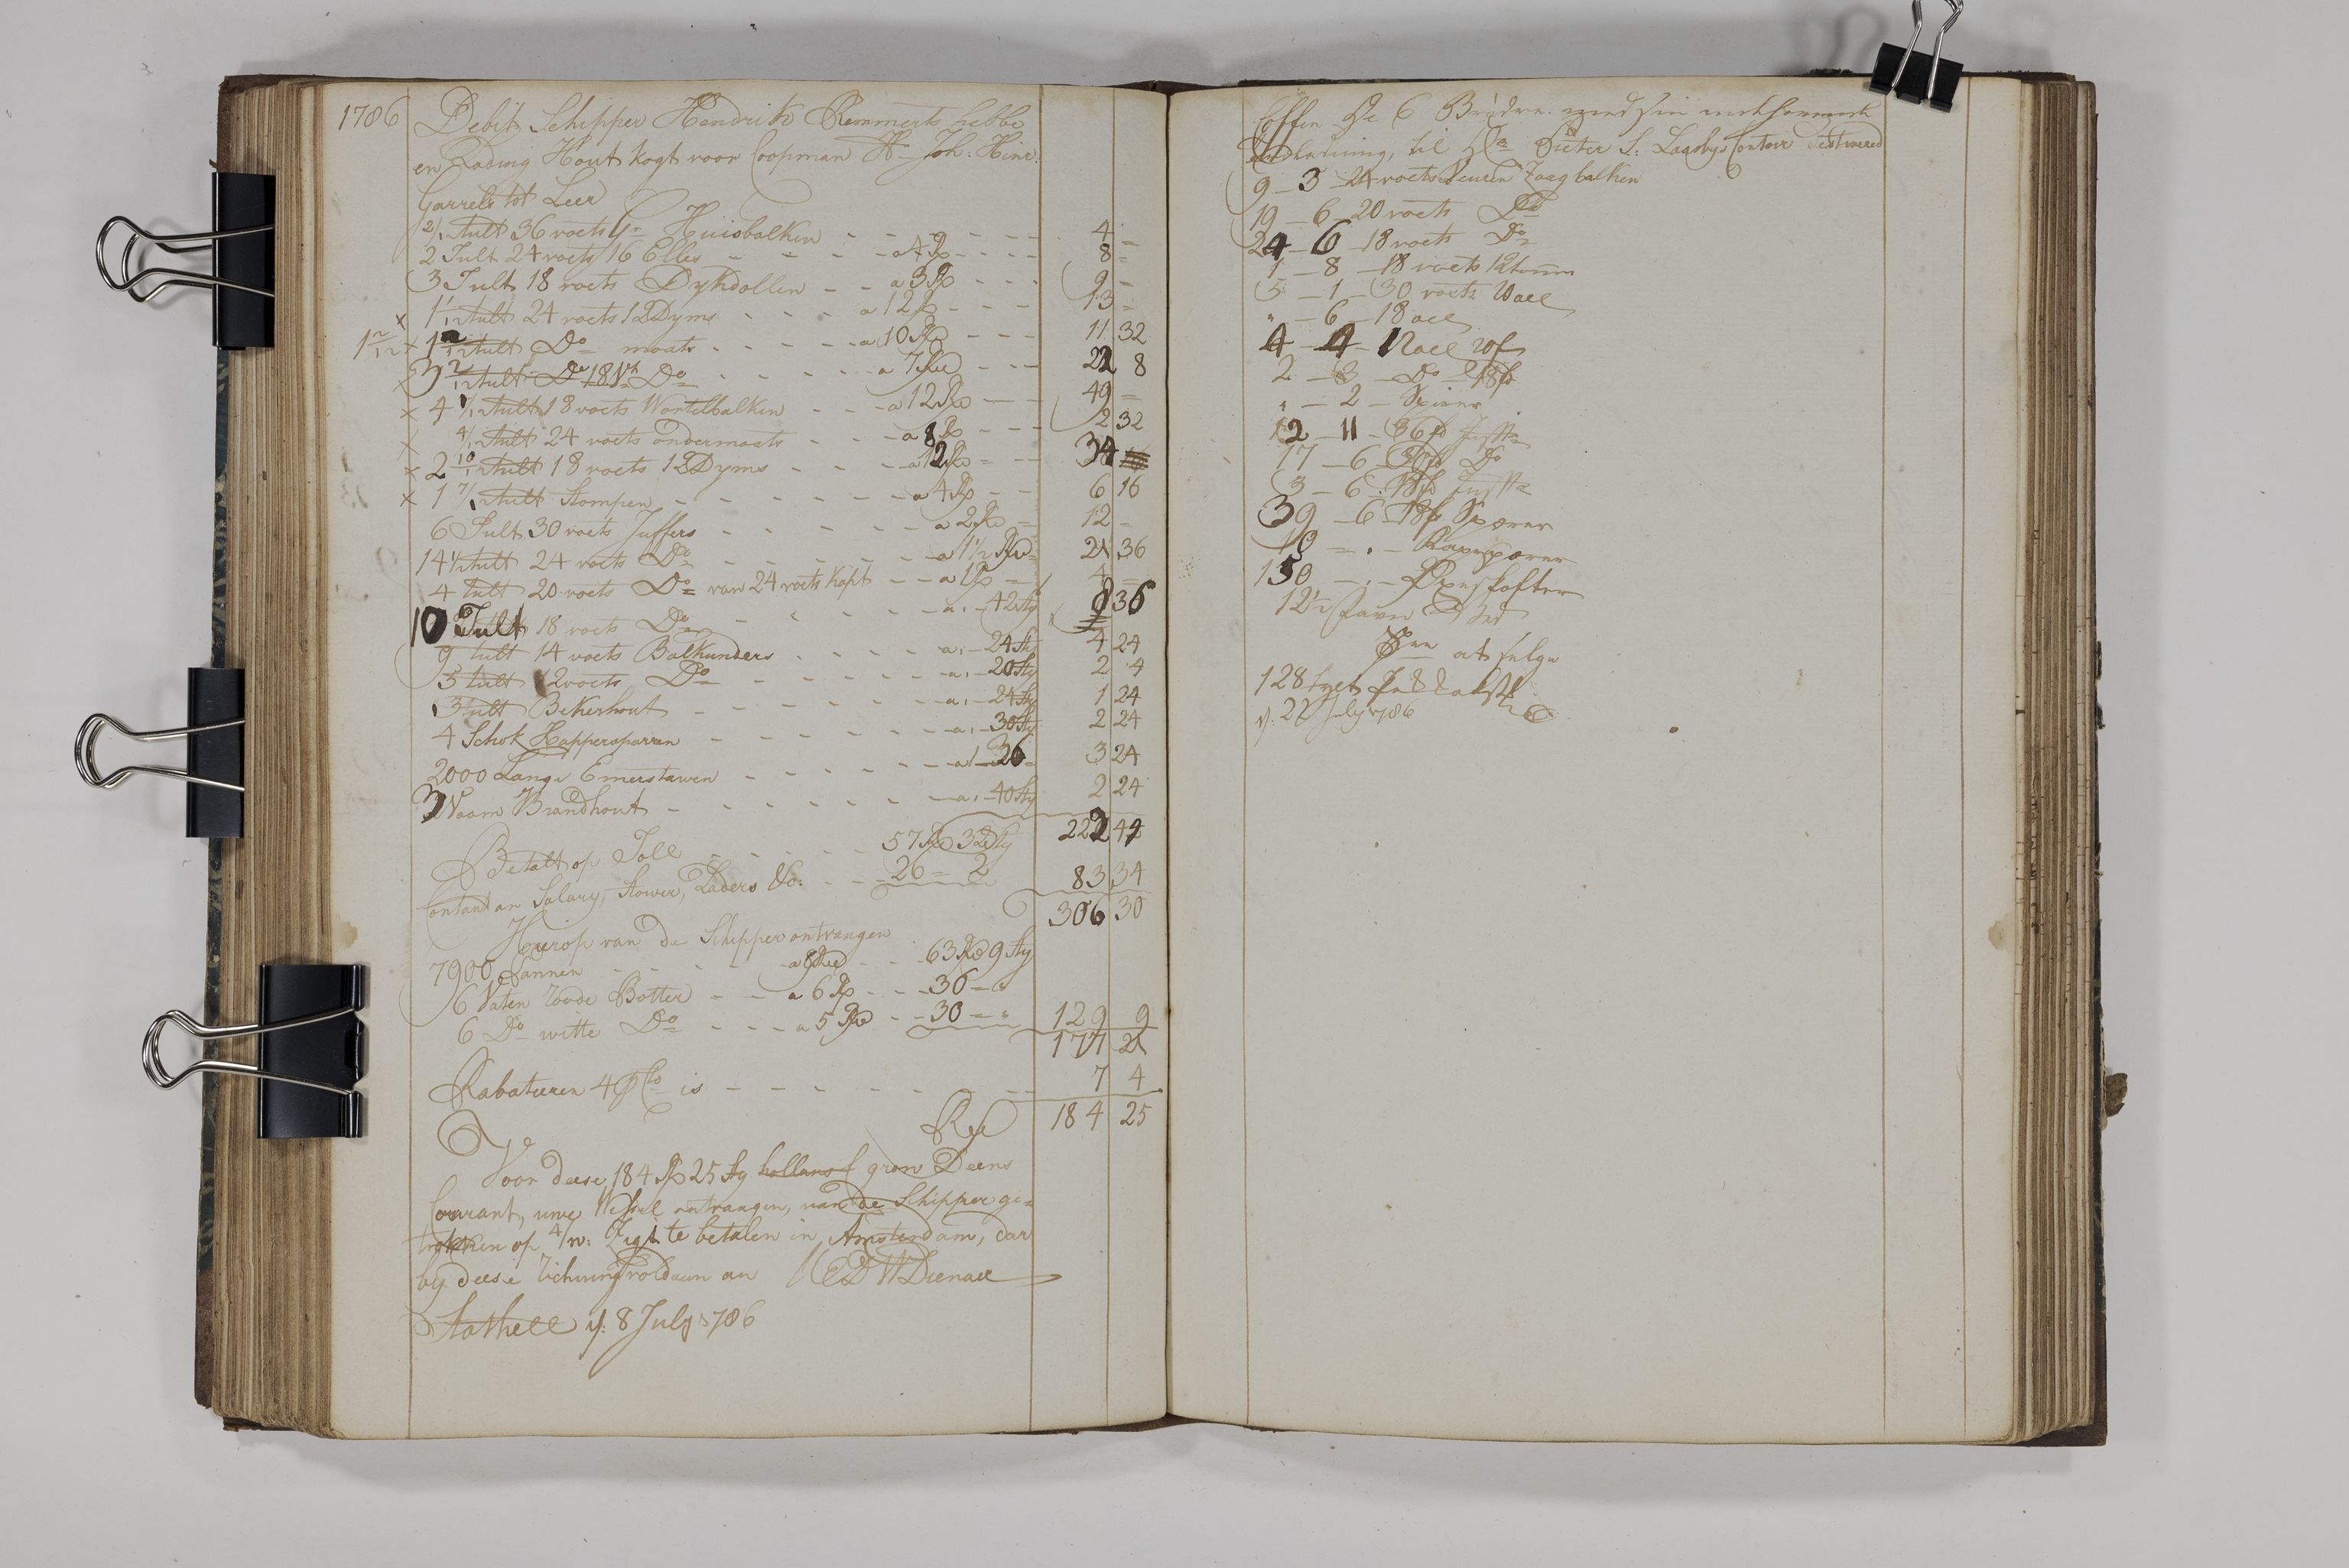 1786 Debit Schipper Hendrik Remmerts hebbe
en Lading Hout kogt voor Coopman Hr Joh: Hinr:
Garrels tot Leer
2/12 tult 36 voets Gr Huisbalken - - - 4 =
2 Tult 24 voets 16 Elles - - - a 4 Rd - - - 8 =
3 Tult 18 voets Dykdollen - - a 3 Rd - - - 9 -
x 1 1/12 tult 24 voets 12 Dyms - - - a 12 Rd - - - 13 =
1 2/12 x 1 2/12 tult Do moats - - - a 10 Rd - - - 11 32
x 3 2/12 tult Do 18 Vt Do - - - a 7 Rd - - - 22 8
x 4 1/12 tult 18 voets Wortelbalken - - - a 12 Rd - - 49 =
x 4/12 tult 24 voets ondermaats - - - a 8 Rd - - - 2 32
x 2 10/12 tult 18 voets 12 Dyms - - - a 12 Rd - - 34
x 1 7/12 tult Stompen - - - a 4 Rd - - 6 16
6 Tult 30 voets Juffers - - - a 2 Rd = 12 -
14 1/2 tult 24 voets Do - - - a 1 1/2 Rd = 21 36
4 tult 20 voets Do van 24 voets Kapt - - a 1 Rd = 4 =
10 Tult 18 voets Do - - - a , - 42 sty 8 36
9 tult 14 voets Balkunders - - - a , - 24 sty 4 24
5 tult 12 voets Do - - - a , - 20 sty 2 4
3 tult Bekerhout - - - a , - 24 sty 1 24
4 Schok Happersparren - - - a , - 30 sty 2 24
2000 Lange Emerstawen - - - a 1 - 36 = 3 24
3 Vaam Brandhout - - - a , - 40 sty 2 24
222 44
Betalt op Toll - - - 57 Rd 32 sty
Contant an Salary, Stower, Laders &c: - - 26 = 2 83 34
306 30
Hierop van de Schipper ontvangen
7900 Pannen - - - a 8 Rd - - 63 Rd 9 sty
6 Vaten roode Botter - - a 6 Rd - - 36 =
6 Do witte Do - - - a 5 Rd - - 30 = " 129 9
177 21
Rabateren 4 PCto is - - - 7 4
Rd 184 25
Voor deese 184 Rd 25 sty hollans grow Deens
Courant, uwe Wissel ontvangen, van de Schipper ge=
trokken op 4/m: Zigt te betalen in Amsterdam, dar
by deese voldaan an
Stathell d: 8 July 1786
De 6 Brødre
til Pieter S: Contoir
9 - 3 - 24 voets Zaagbalken
19 - 6 - 20 voets Do
24 - 6 - 18 voets Do
1 - 8 - 18 voets 12 tomm
5 - 1 - 30 voets 10 all
" - 6 - 18 all
4 - 4 - 12 all 20 f
2 - 3 - Do - 18 f
" - 2 - Spirer
12 - 11 - 36 fd
17 - 6 - 30 fd Do
3 - 6 - 18 fd
39 - 6 - 18 f Sparer
10 - " -
150 - " -
12 1/2 favn
at følge
128
d: 22 July 1786